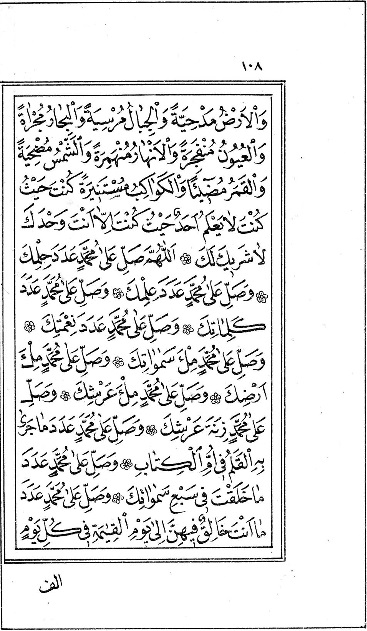 ١٠٨
وَالْاَرْضُ مَدْحِيَّةً وَالْجِبَالُ مُرْسِيَةً وَالْبِحَارُ مُجْرَاةً
وَالْعُيُونُ مُنْفَجِرَةً وَالْاَنْهَارُ مُنْهَمِرَةً وَالشَّمْسُ مُضْحِيَةً
وَالْقَمَرُ مُضِيْئًا وَالْكَوَاكِبُ مُسْتَنِيْرَةً كُنْتَ حَيْثُ
كُنْتَ لَا يَعْلَمُ اَحَدٌ حَيْثُ كُنْتَ اِلَّا اَنْتَ وَحْدَكَ
لَا شَرِيْكَ لَكَ ۞ اَللّٰهُمَّ صَلِّ عَلٰى مُحَمَّدٍ عَدَدَ حِلْمِكَ
۞ وَصَلِّ عَلٰى مُحَمَّدٍ عَدَدَ عِلْمِكَ ۞ وَصَلِّ عَلٰى مُحَمَّدٍ عَدَدَ
كَلِمَاتِكَ ۞ وَصَلِّ عَلٰى مُحَمَّدٍ عَدَدَ نِعْمَتِكَ ۞
وَصَلِّ عَلٰى مُحَمَّدٍ مِلْءَ سَمٰوَاتِكَ ۞ وَصَلِّ عَلٰى مُحَمَّدٍ مِلْءَ
اَرْضِكَ ۞ وَصَلِّ عَلٰى مُحَمَّدٍ مِلْءَ عَرْشِكَ ۞ وَصَلِّ
عَلٰى مُحَمَّدٍ زِنَةَ عَرْشِكَ ۞ وَصَلِّ عَلٰى مُحَمَّدٍ عَدَدَ مَا جَرٰى
بِهِ الْقَلَمُ فِيْ اُمِّ الْكِتَابِ ۞ وَصَلِّ عَلٰى مُحَمَّدٍ عَدَدَ
مَا خَلَقْتَ فِيْ سَبْعِ سَمٰوَاتِكَ ۞ وَصَلِّ عَلٰى مُحَمَّدٍ عَدَدَ
مَا اَنْتَ خَالِقٌ فِيْهِنَّ اِلٰى يَوْمِ الْقِيٰمَةِ فِيْ كُلِّ يَوْمٍ
الف